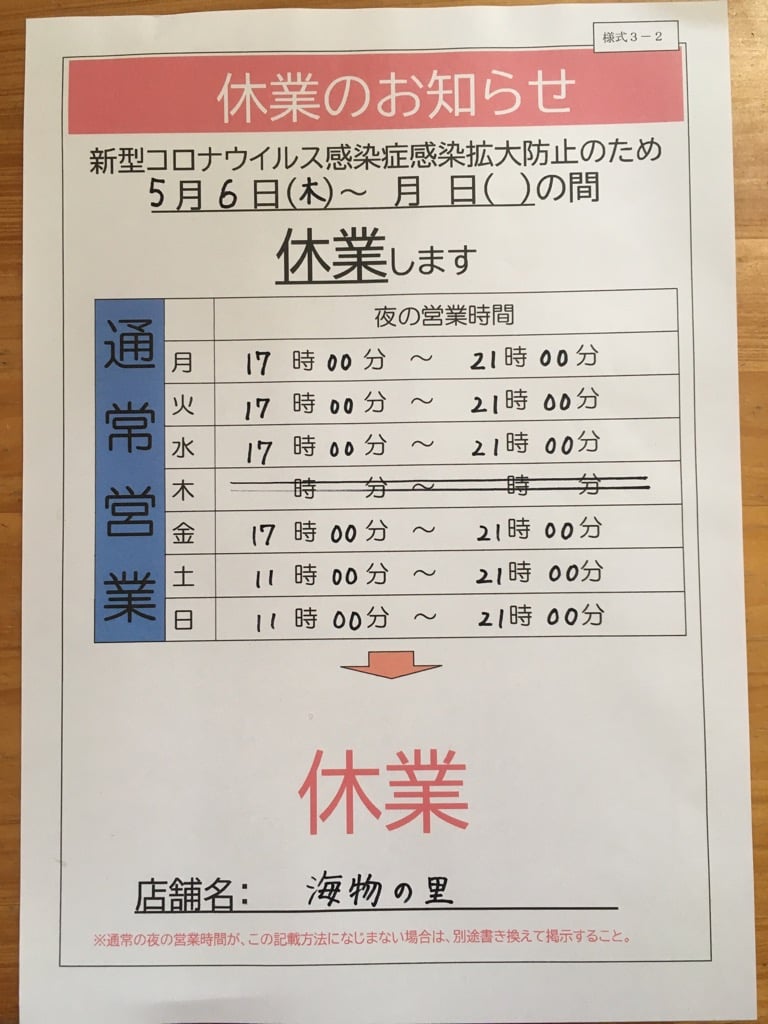 様式３－２
休業のお知らせ
新型コロナウイルス感染症感染拡大防止のため
5月6日(木)～ 月 日( )の間
休業します
通常営業
夜の営業時間
月 17時00分 ～ 21時00分
火 17時00分 ～ 21時00分
水 17時00分 ～ 21時00分
木 時 分 ～ 時 分
金 17時00分 ～ 21時00分
土 11時00分 ～ 21時00分
日 11時00分 ～ 21時00分
休業
店舗名： 海物の里
※通常の夜の営業時間が、この記載方法になじまない場合は、別途書き換えて掲示すること。